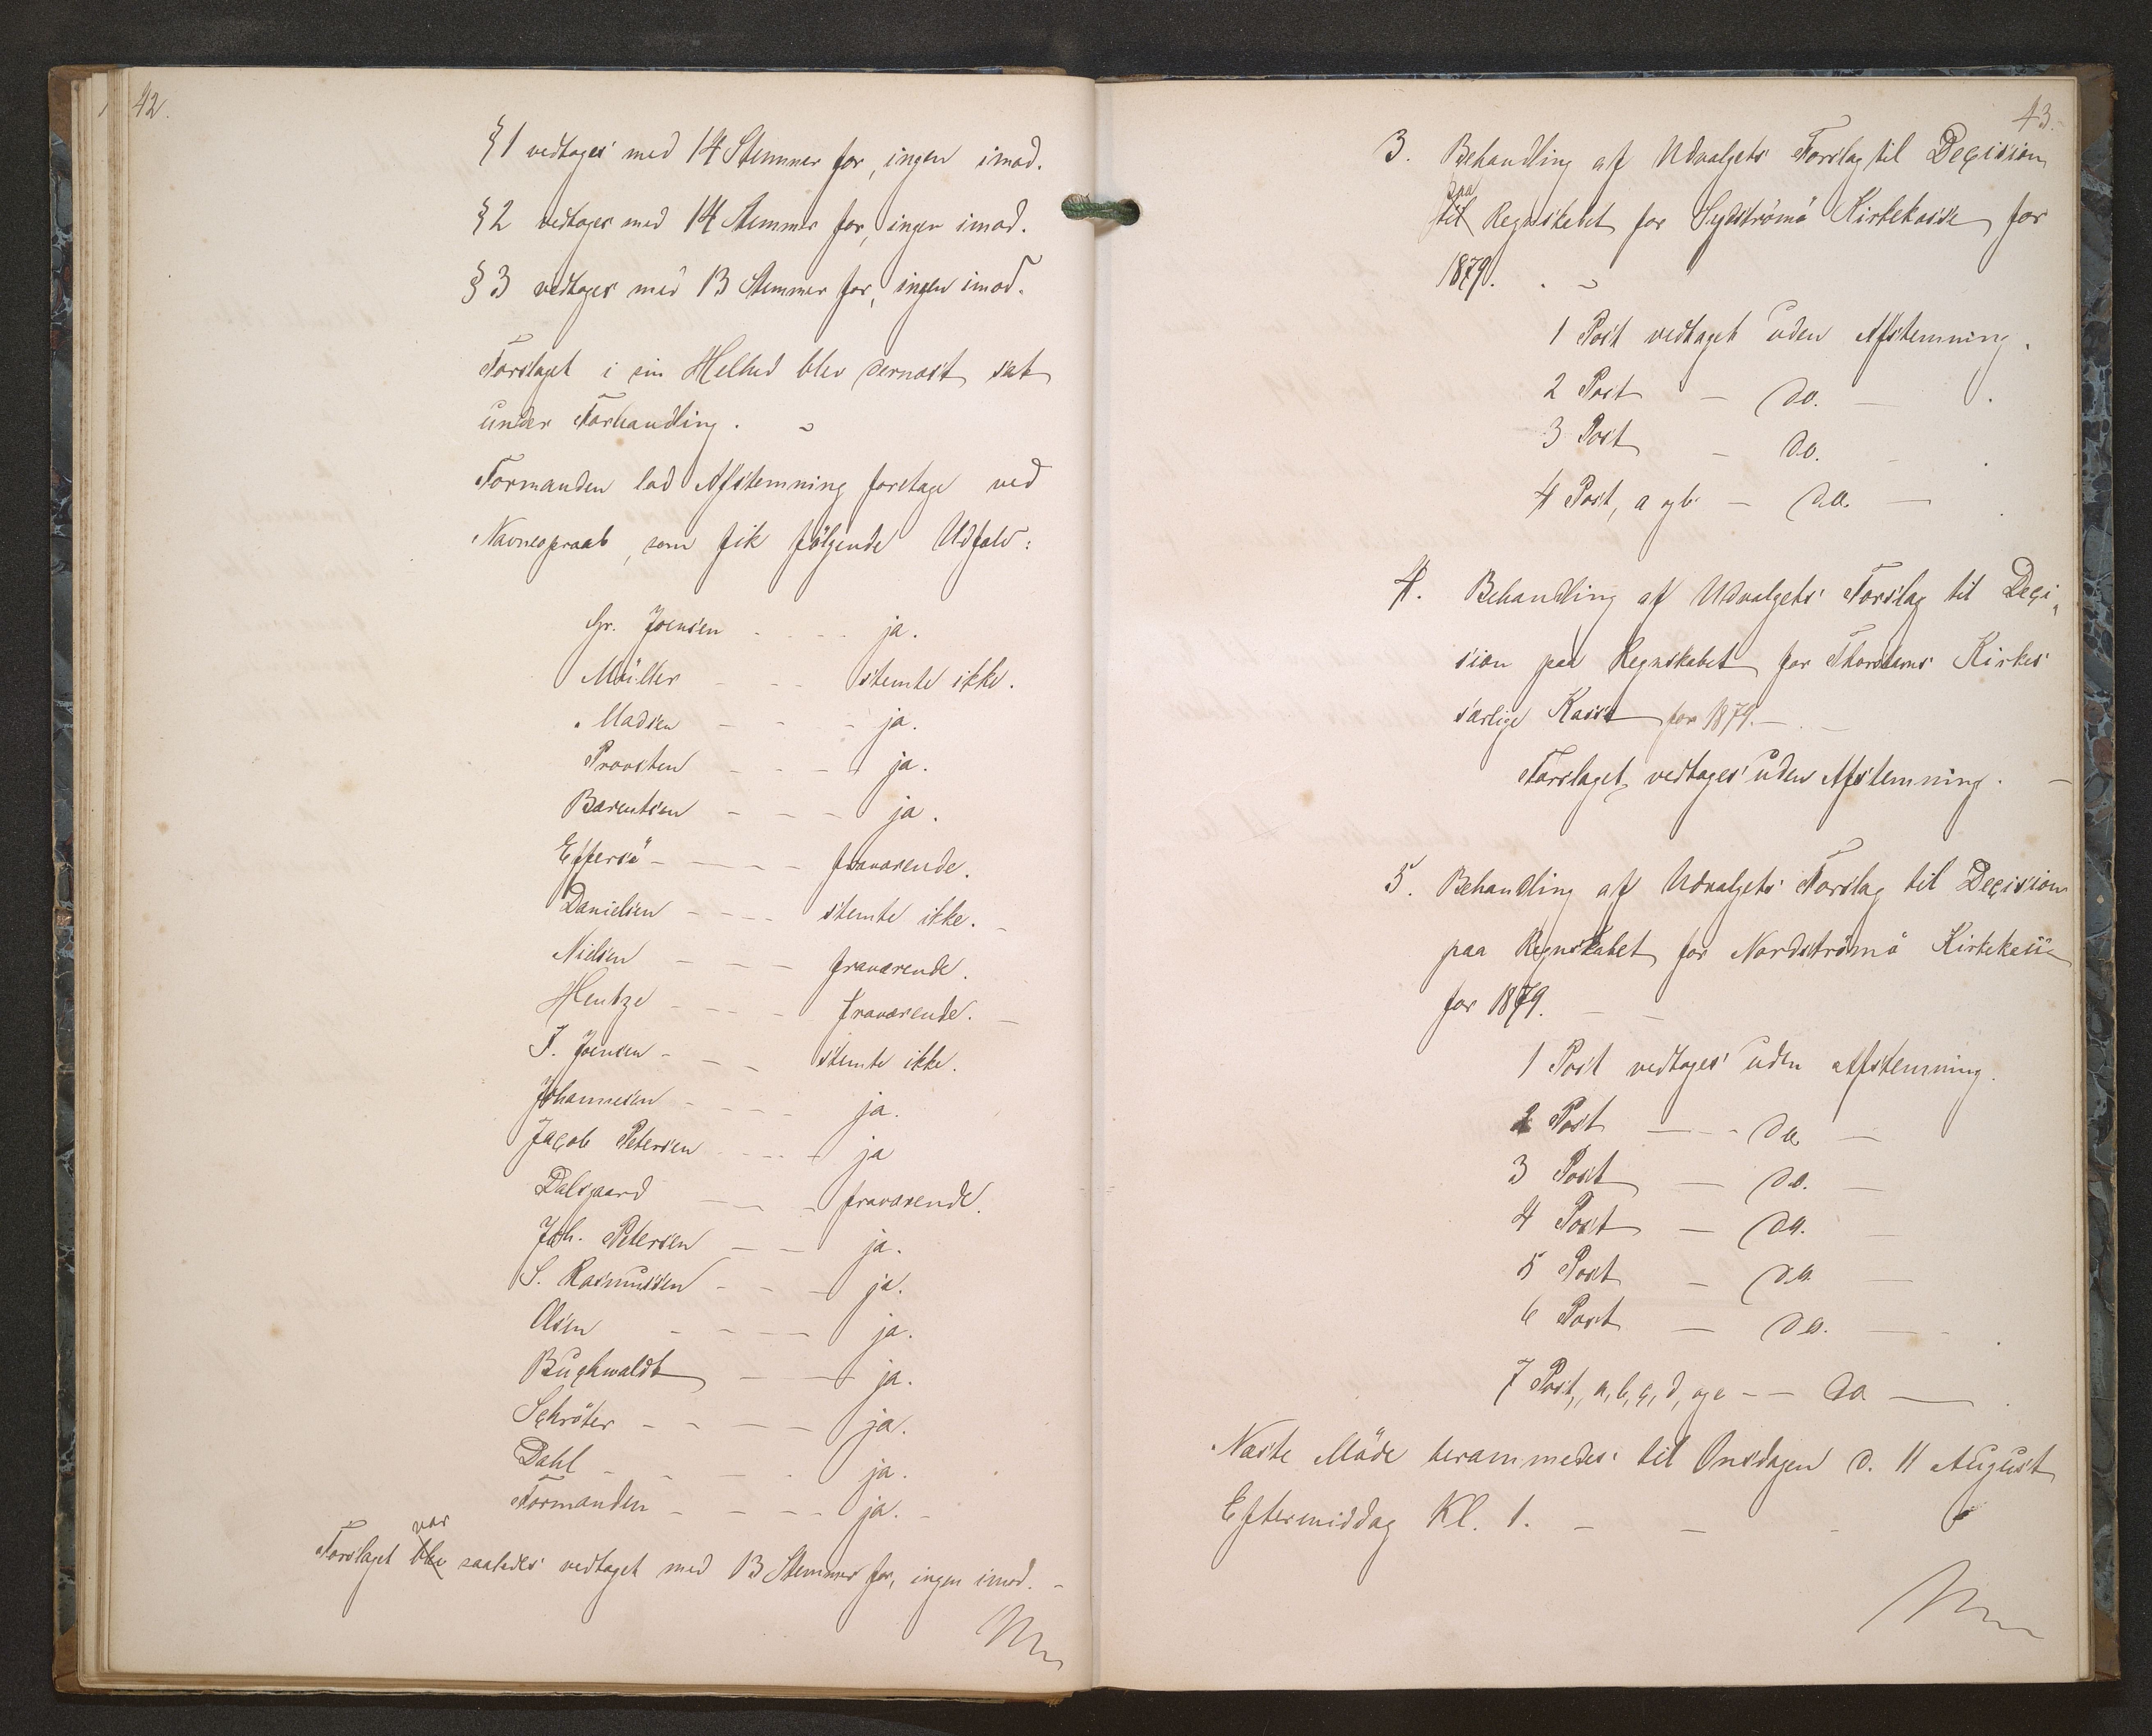 42.
§1 vedtoges med 14 Stemmer for, ingen imod.
§2 vedtoges med 14 Stemmer for, ingen imod.
§3 vedtoges med 13 Stemmer for, ingen imod.
Forslaget i sin Helhed blev dernæst sat
under Forhandling.
Formanden lod Afstemning foretage ved
Navneopraab, som fik følgende Udfald:
Gr. Joensen - - - - ja.
Müller - - - stemte ikke.
Madsen - - - ja.
Provsten - - - - ja.
Bærentsen - - - ja.
Effersö - - - - fraværende.
Danielsen - - - - stemte ikke. -
Nielsen - - - fraværende.
Hentze - - - - fraværende. -
J. Joensen - - - stemte ikke.
Johannesen - - - - ja.
Jacob Petersen - - - - ja
Dalsgaard - - - fraværende.
Joh. Petersen - - ja.
S. Rasmussen - - - ja.
Olsen - - - - ja.
Buchwaldt - - ja.
Schröter - - - - ja.
Dahl - - - - ja.
Formanden - - - - ja. -
var
Forslaget blev saaledes vedtaget med 13 Stemmer for, ingen imod. -
43.
3. Behandling af Udvalgets Forslag til Decision
paa
til Regnskabet for Sydströmö Kirkekasse for
1879.
1 Post vedtaget uden Afstemning.
2 Post - do. -
3 Post - do. -
4 Post, a og b - do. -
4. Behandling af Udvalgets Forslag til Deci-
sion paa Regnskabet for Thorshavns Kirkes
særlige Kasse for 1879. -
Forslaget vedtages uden Afstemning. -
5. Behandling af Udvalgets Forslag til Decision
paa Regnskabet for Nordströmö Kirkekasse
for 1879. - -
1 Post vedtages uden Afstemning.
2 Post - - do. -
3 Post - do. -
4 Post - do. -
5 Post - do. -
6 Post - do. -
7 Post, a, b, c, d, og e - - do -
Næste Möde berammedes til Onsdagen d. 11 August
Eftermiddag Kl. 1. - - -